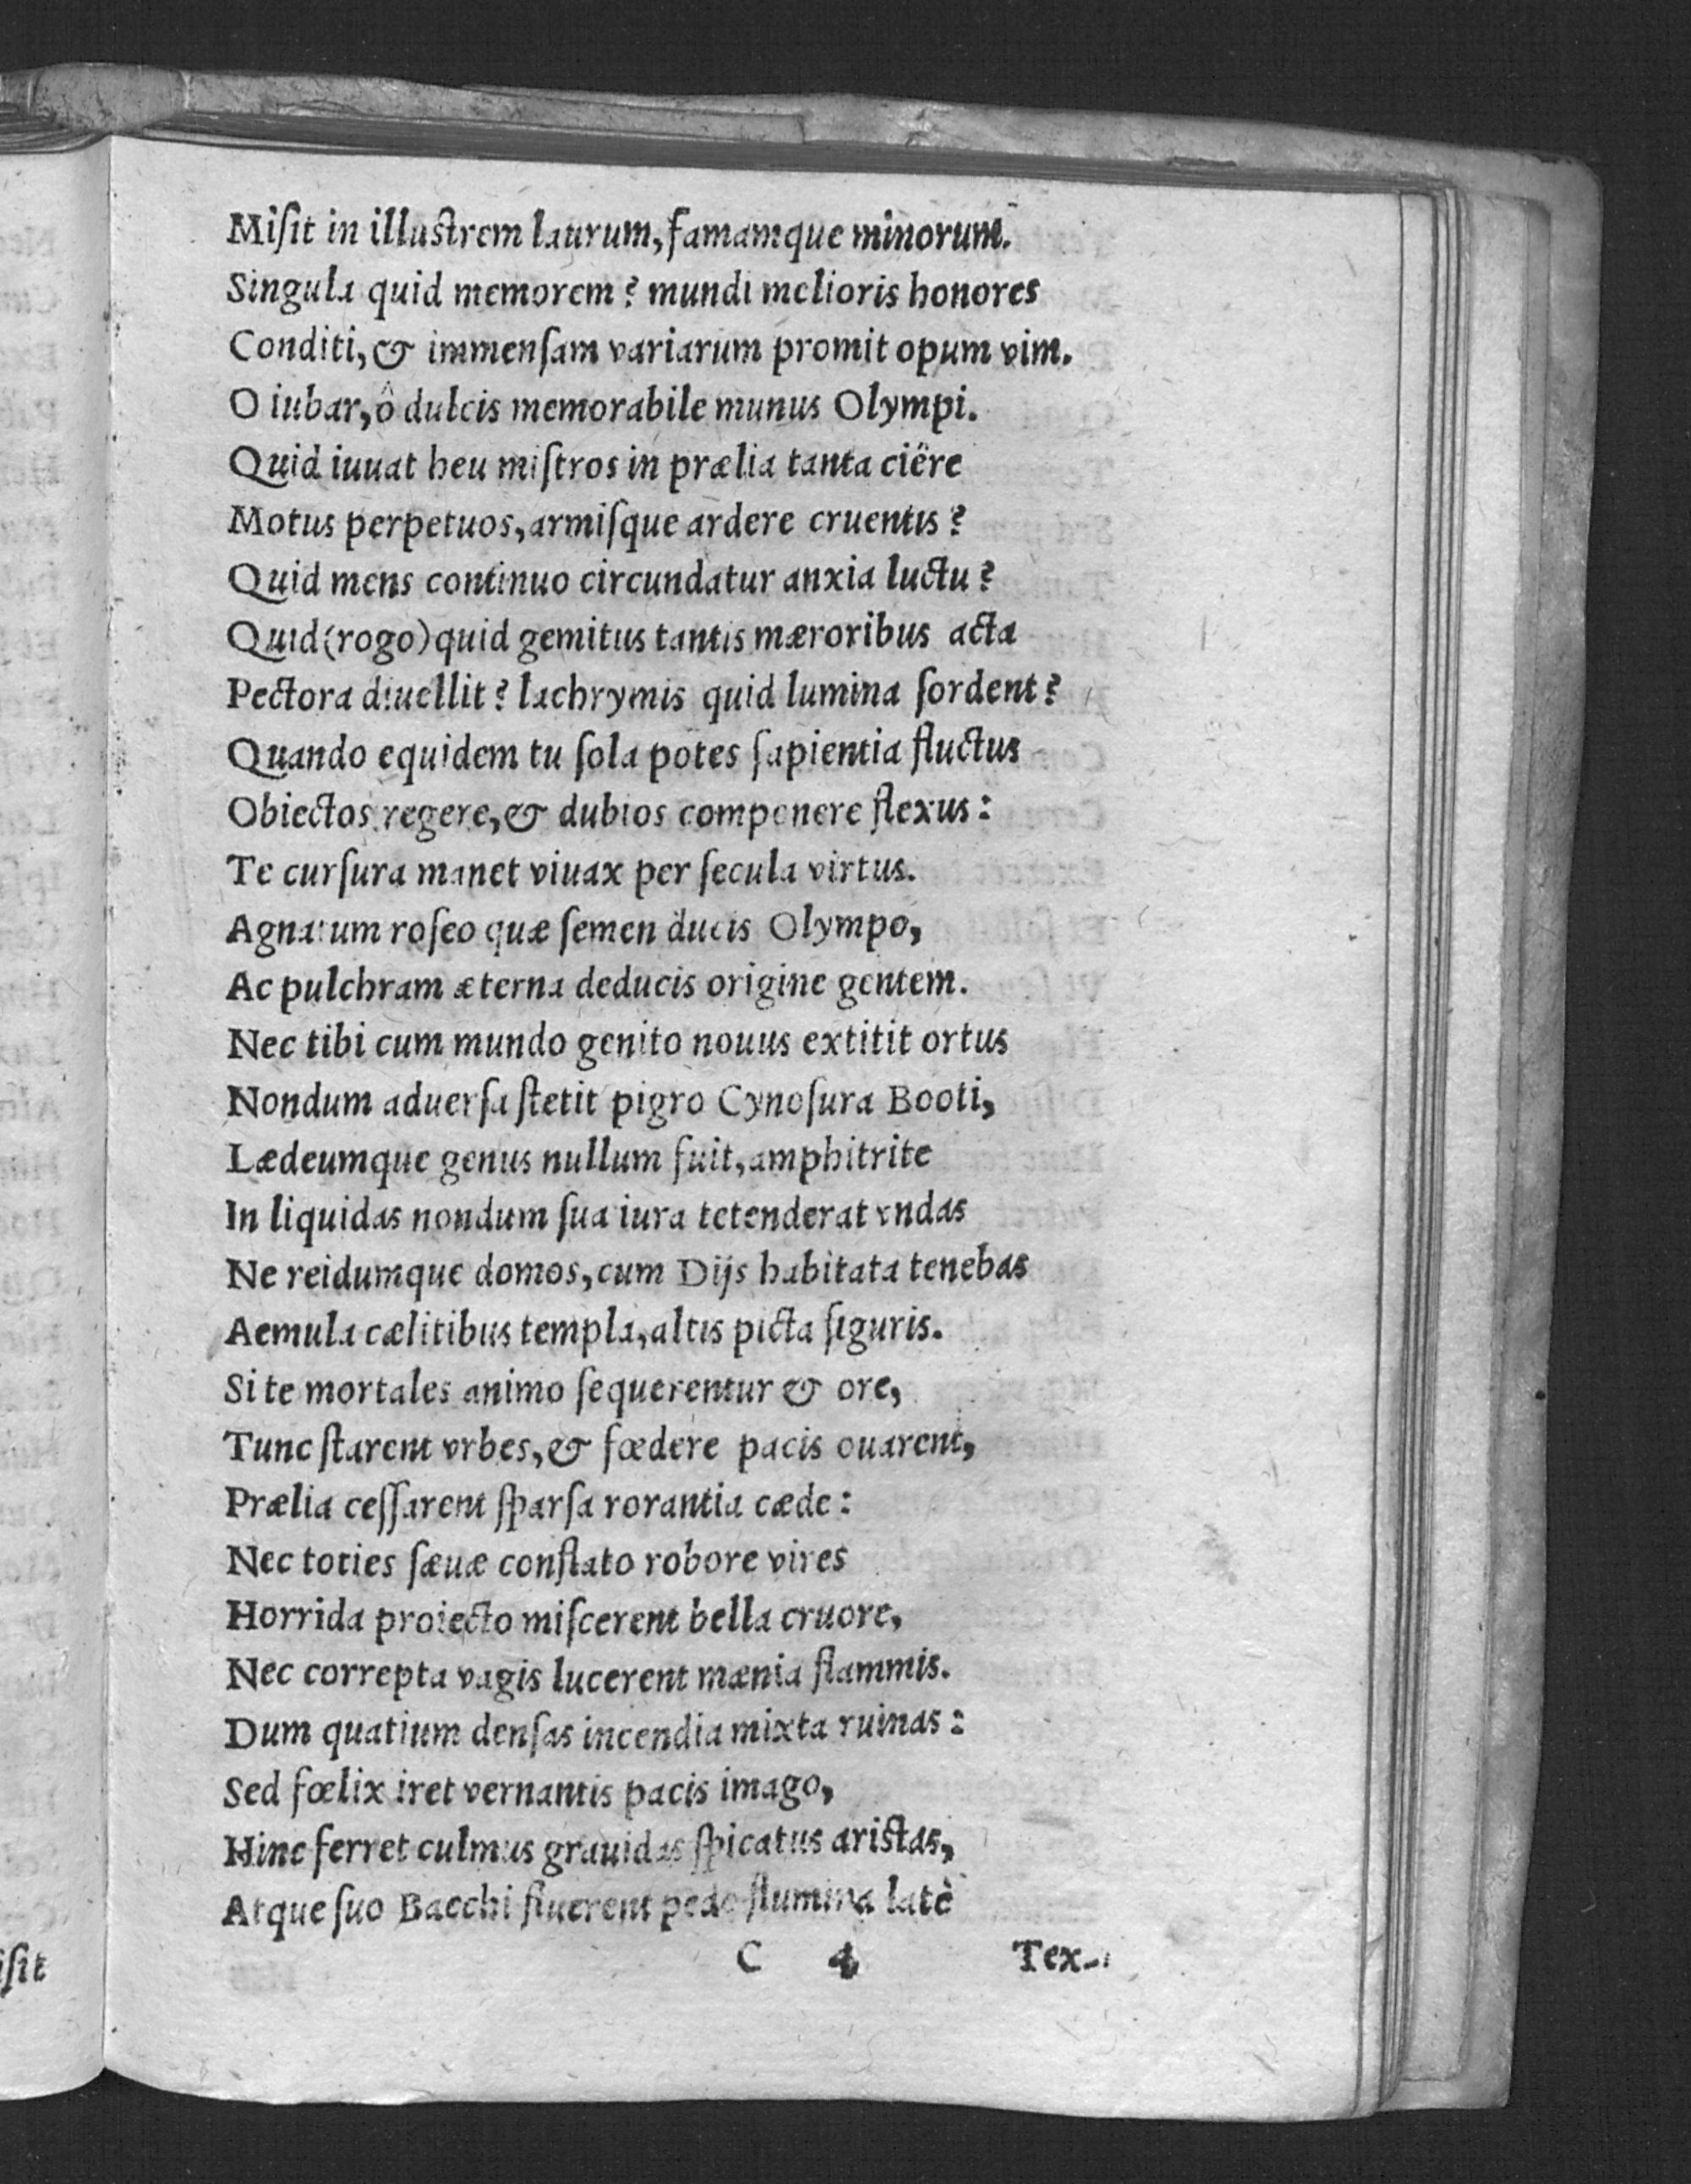 Miſit in illuſtrem laurum, famamque minorum.
Singula quid memorem? mundi melioris honores
Conditi, & immenſam variarum promit opum vim.
O iubar, ô dulcis memorabile munus Olympi.
Quid iuuat heu miſtros in prælia tanta ciëre
Motus perpetuos, armiſque ardere cruentis?
Quid mens continuo circundatur anxia luctu?
Quid (rogo) quid gemitus tantis mæroribus acta
Pectora diuellit? lachrymis quid lumina ſordent?
Quando equidem tu ſola potes ſapientia fluctus
Obiectos regere, & dubios componere flexus:
Te curſura manet viuax per ſecula virtus.
Agnatum roſeo quæ ſemen ducis Olympo,
Ac pulchram æterna deducis origine gentem.
Nec tibi cum mundo genito nouus extitit ortus
Nondum aduerſa ſtetit pigro Cynoſura Booti,
Lædeumque genus nullum fuit, amphitrite
In liquidas nondum ſua iura tetenderat vndas
Ne reidumque domos, cum Dijs habitata tenebas
Aemula cælitibus templa, altis picta figuris.
Si te mortales animo ſequerentur & ore,
Tunc ſtarent vrbes, & fœdere pacis ouarent,
Prælia ceſſarent ſparſa rorantia cæde:
Nec toties ſæuæ conflato robore vires
Horrida proiecto miſcerent bella cruore,
Nec correpta vagis lucerent mænia flammis.
Dum quatium denſas incendia mixta ruinas:
Sed fœlix iret vernantis pacis imago,
Hinc ferret culmus grauidas ſpicatus ariſtas,
Atque ſuo Bacchi fluerent pede flumina latè
C 4 Tex-
iſit